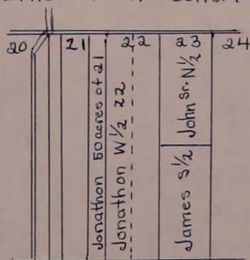 20
21
22
23
24
Jonathon 50 acres of 21
Jonathon W½ 22
John Sr. N½
James S½